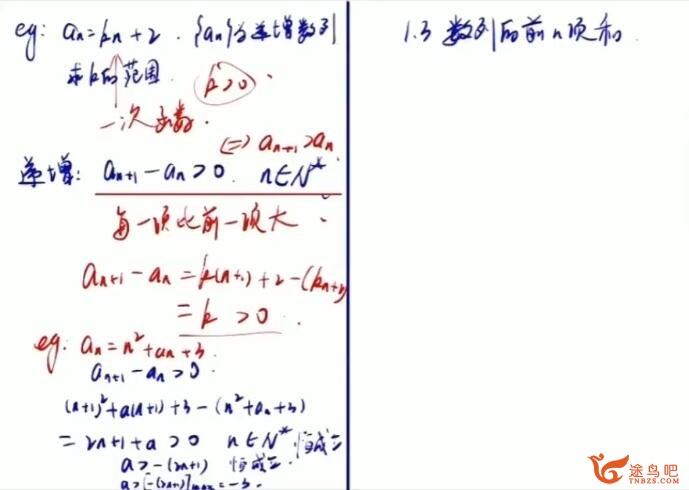 eg: aₙ=kn+2. {aₙ}为递增数列
求k的范围. k>0.
一次函数.
⇔ aₙ₊₁>aₙ.
递增: aₙ₊₁-aₙ>0. n∈N*
每一项比前一项大.
aₙ₊₁-aₙ=k(n+1)+2-(kn+2)
=k>0.
eg: aₙ=n²+an+3.
aₙ₊₁-aₙ>0.
(n+1)²+a(n+1)+3-(n²+an+3)
=2n+1+a>0 n∈N* 恒成立
a>-(2n+1) 恒成立.
a>[-(2n+1)]max=-3.
1.3 数列的前n项和.
途鸟吧
TNBZS.COM